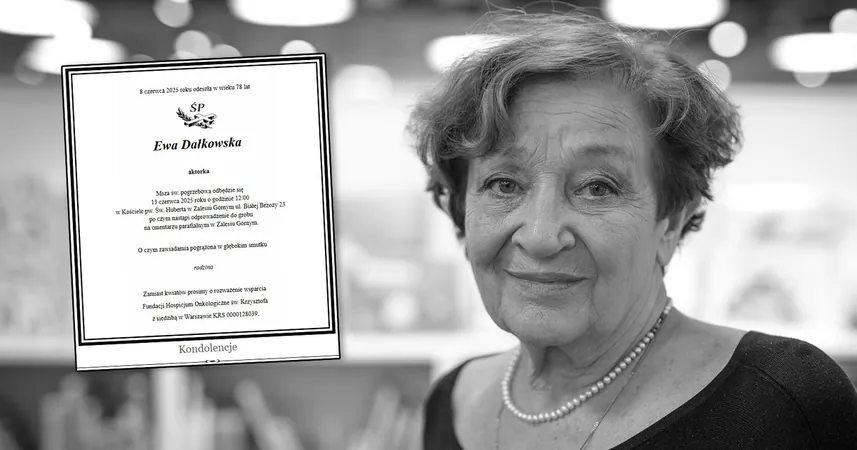 8 czerwca 2025 roku odeszła w wieku 78 lat
ŚP
Ewa Dałkowska
aktorka
Msza św. pogrzebowa odbędzie się
13 czerwca 2025 roku o godzinie 12:00
w Kościele pw. Św. Huberta w Zalesiu Górnym ul. Białej Brzozy 23
po czym nastąpi odprowadzenie do grobu
na cmentarzu parafialnym w Zalesiu Górnym.
O czym zawiadamia pogrążona w głębokim smutku
rodzina
Zamiast kwiatów prosimy o rozważenie wsparcia
Fundacji Hospicjum Onkologiczne św. Krzysztofa
z siedzibą w Warszawie KRS 0000128039.
Kondolencje